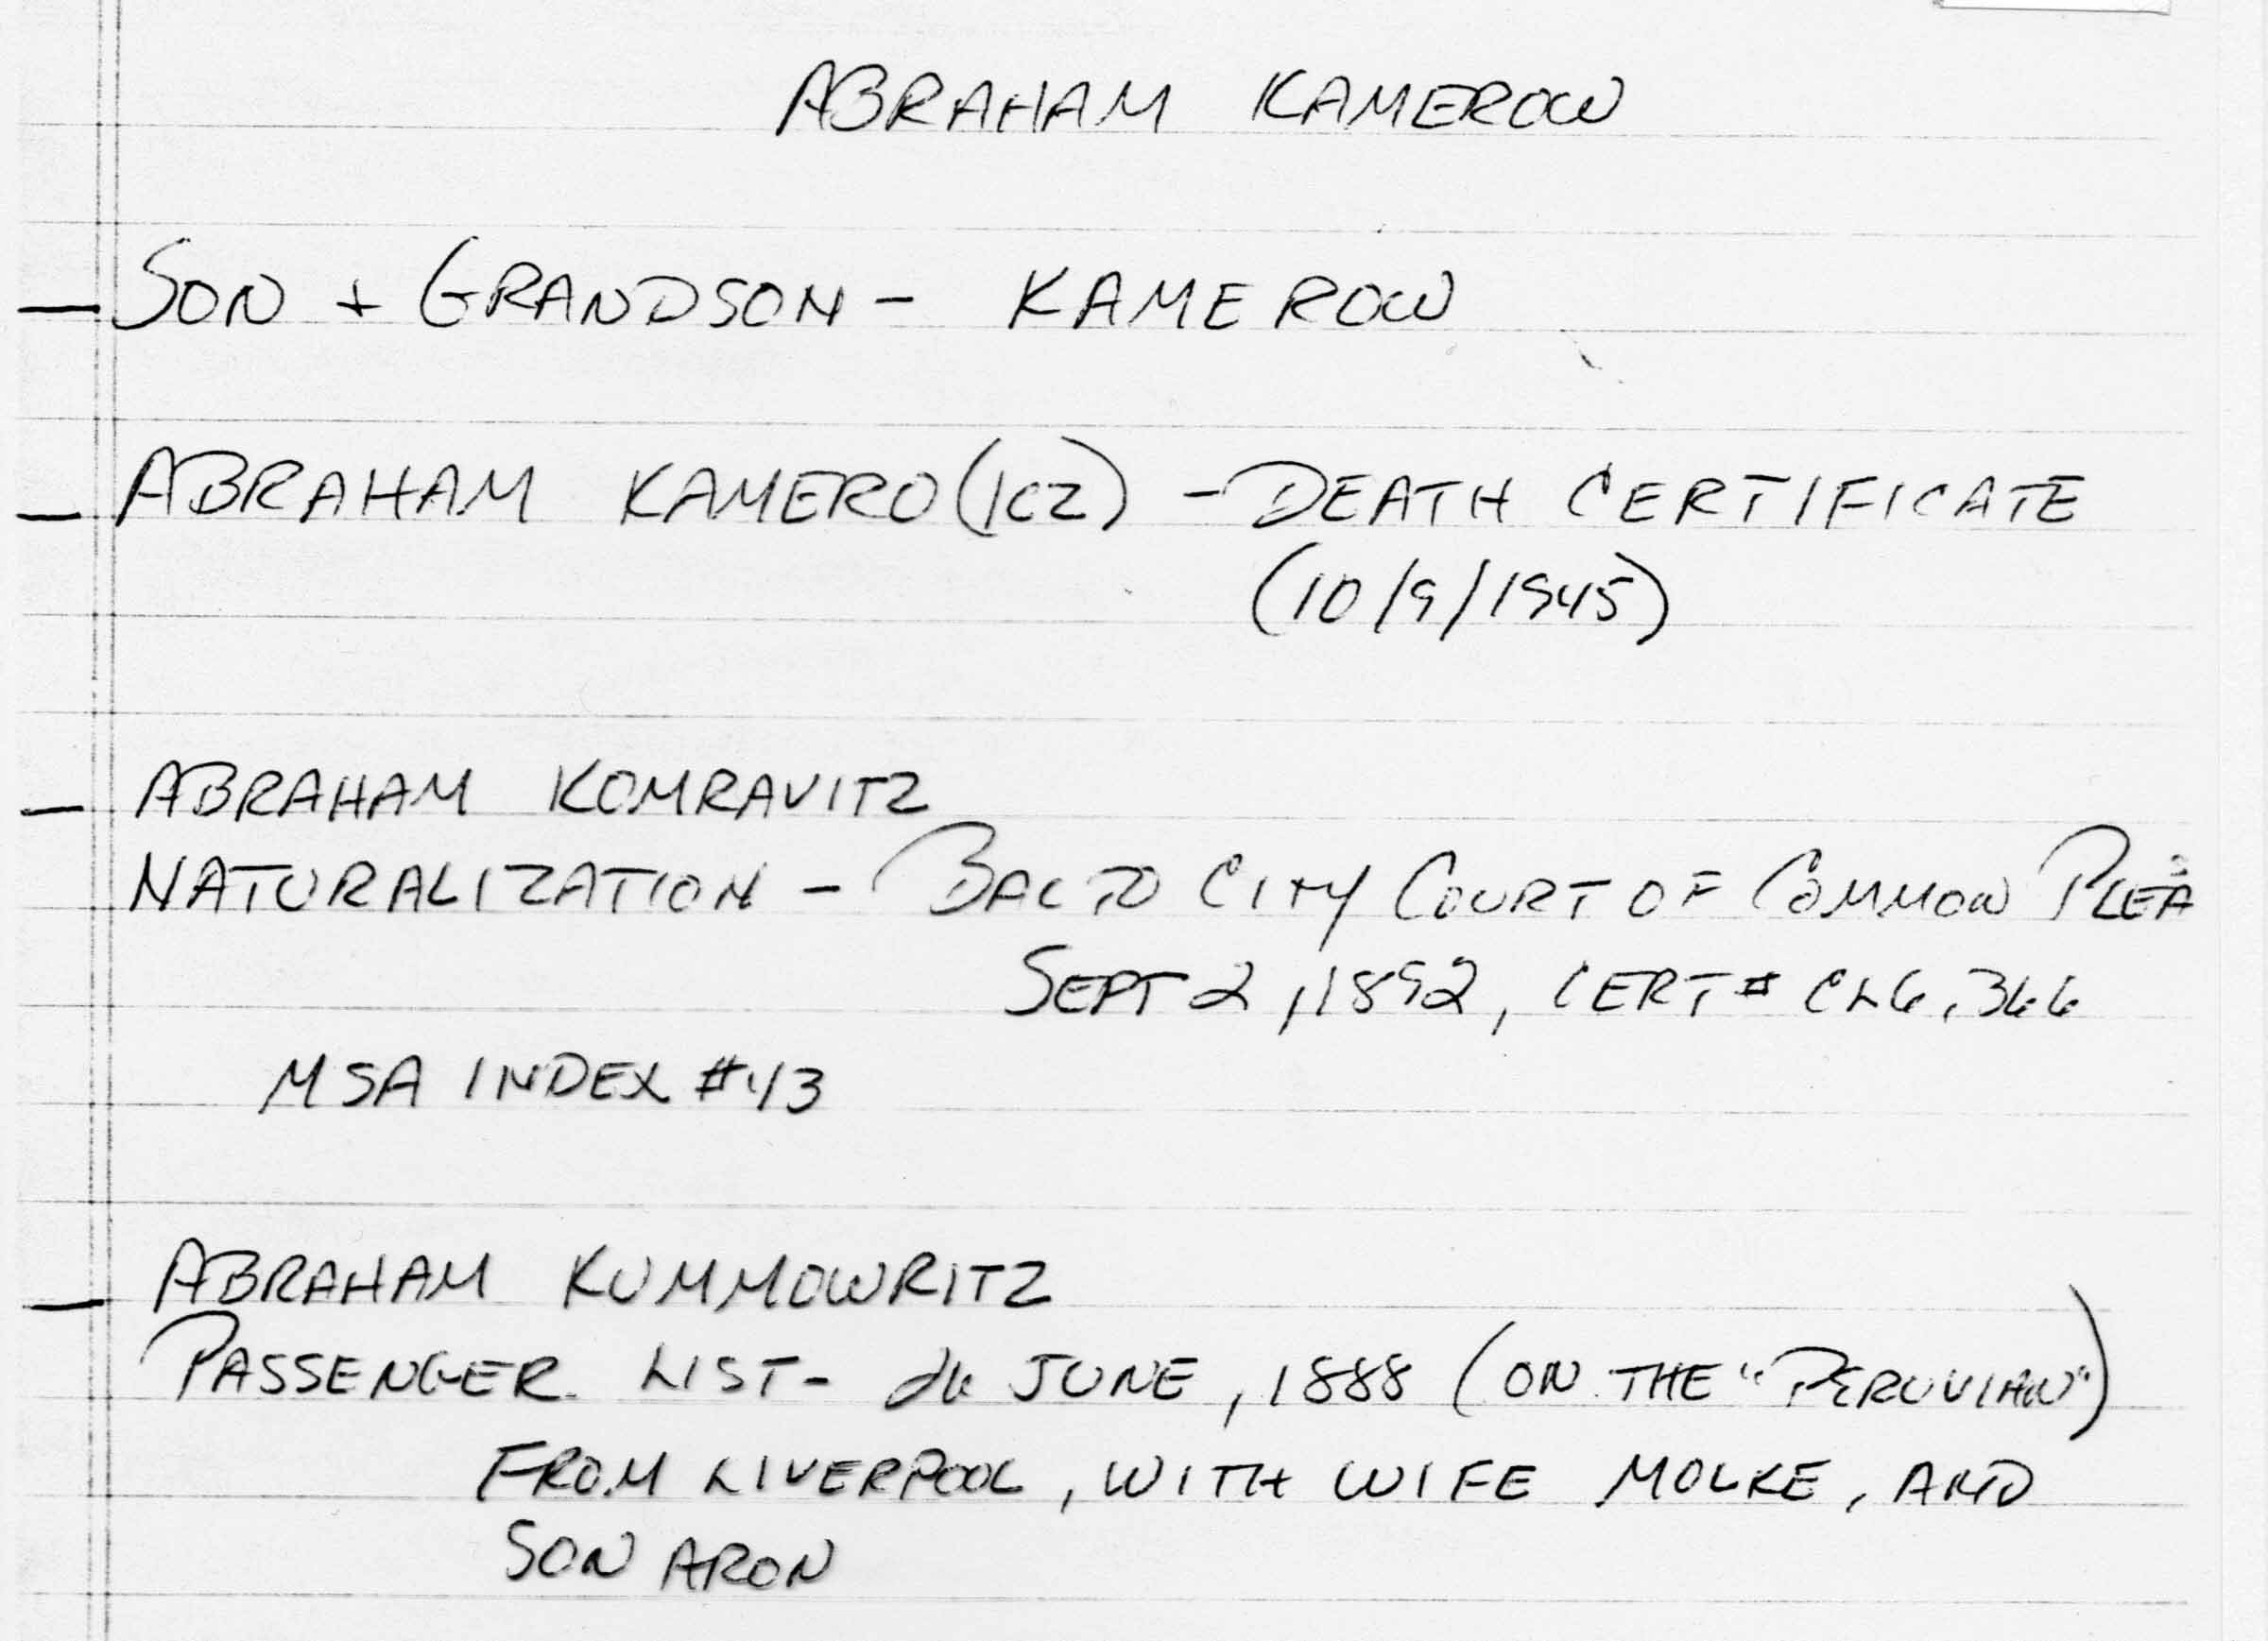 ABRAHAM KAMEROW
— SON + GRANDSON - KAMEROW
— ABRAHAM KAMERO(ICZ) - DEATH CERTIFICATE
(10/9/1945)
— ABRAHAM KOMRAVITZ
NATURALIZATION - BALTO CITY COURT OF COMMON PLEAS
SEPT 2, 1892, CERT # CLG, 366
MSA INDEX #43
— ABRAHAM KUMMOWRITZ
PASSENGER LIST - 26 JUNE, 1888 (ON THE "PERUVIAN")
FROM LIVERPOOL, WITH WIFE MOLKE, AND
SON ARON